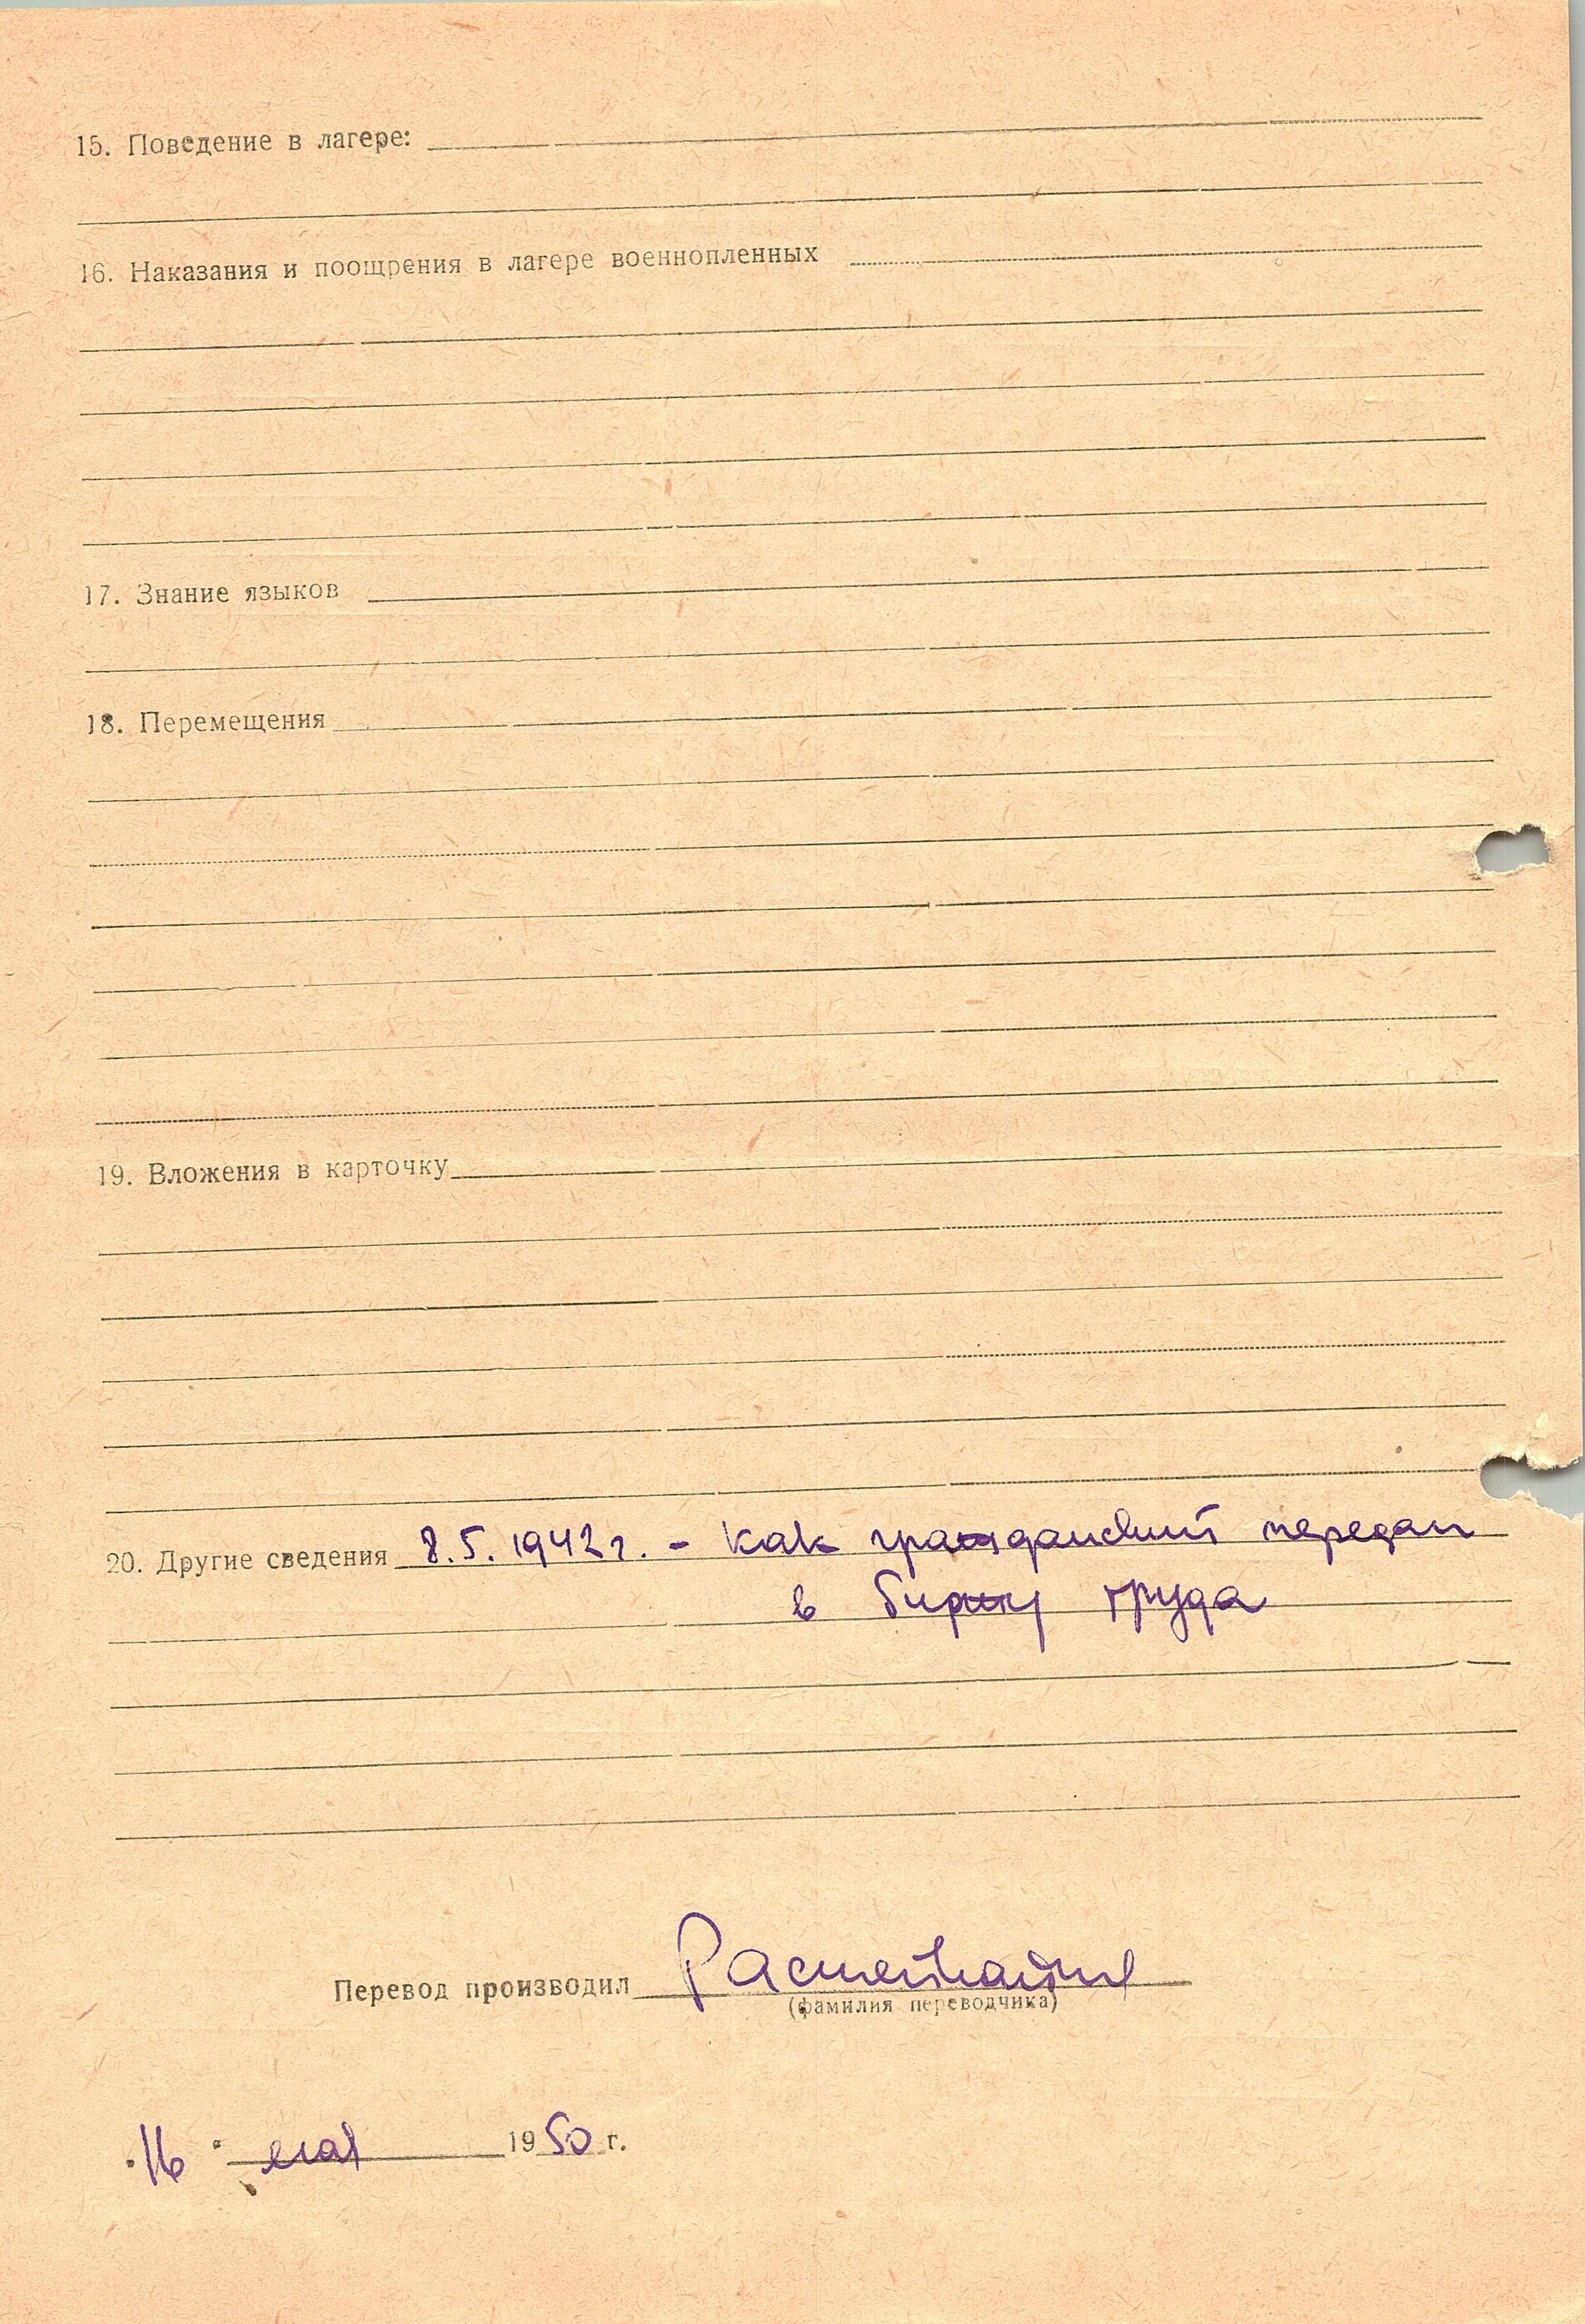 15. Поведение в лагере:
16. Наказания и поощрения в лагере военнопленных
17. Знание языков
18. Перемещения
19. Вложения в карточку
20. Другие сведения 8.5.1942 г. - как гражданский передан
в биржу труда
Перевод производил
(фамилия переводчика)
"16" мая 1950 г.